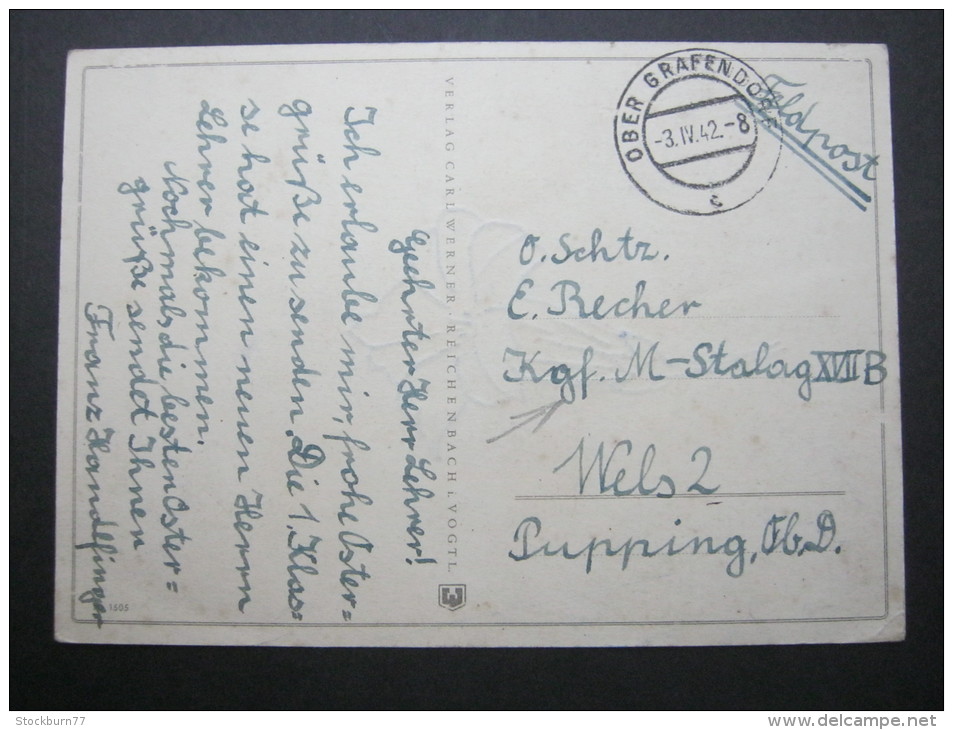 OBER GRAFENDORF
-3.IV.42.-8
c
Feldpost
O. Schtz.
E. Recher
Kgf. M-Stalag XVII B
Wels 2
Pupping, Ob.D.
VERLAG CARL WERNER · REICHENBACH i. VOGTL.
Geehrter Herr Lehrer!
Ich erlaube mir, frohe Oster=
grüße zu senden. Die 1. Klas=
se hat einen neuen Herrn
Lehrer bekommen.
Nochmals die besten Oster=
grüße sendet Ihnen
Franz Handlfinger
1505
Stockburn77
http://www.delcampe.net